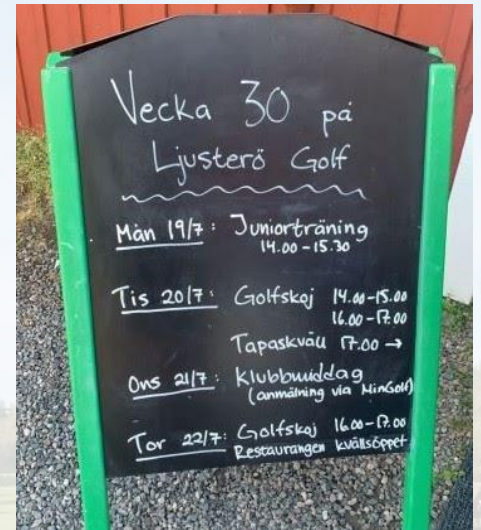 Vecka 30 på
Ljusterö Golf
Mån 19/7: Juniorträning
14.00-15.30
Tis 20/7: Golfskoj 14.00-15.00
16.00-17.00
Tapaskväll 17.00 →
Ons 21/7: Klubbmiddag
(anmälning via MinGolf)
Tor 22/7: Golfskoj 16.00-17.00
Restaurangen kvällsöppet